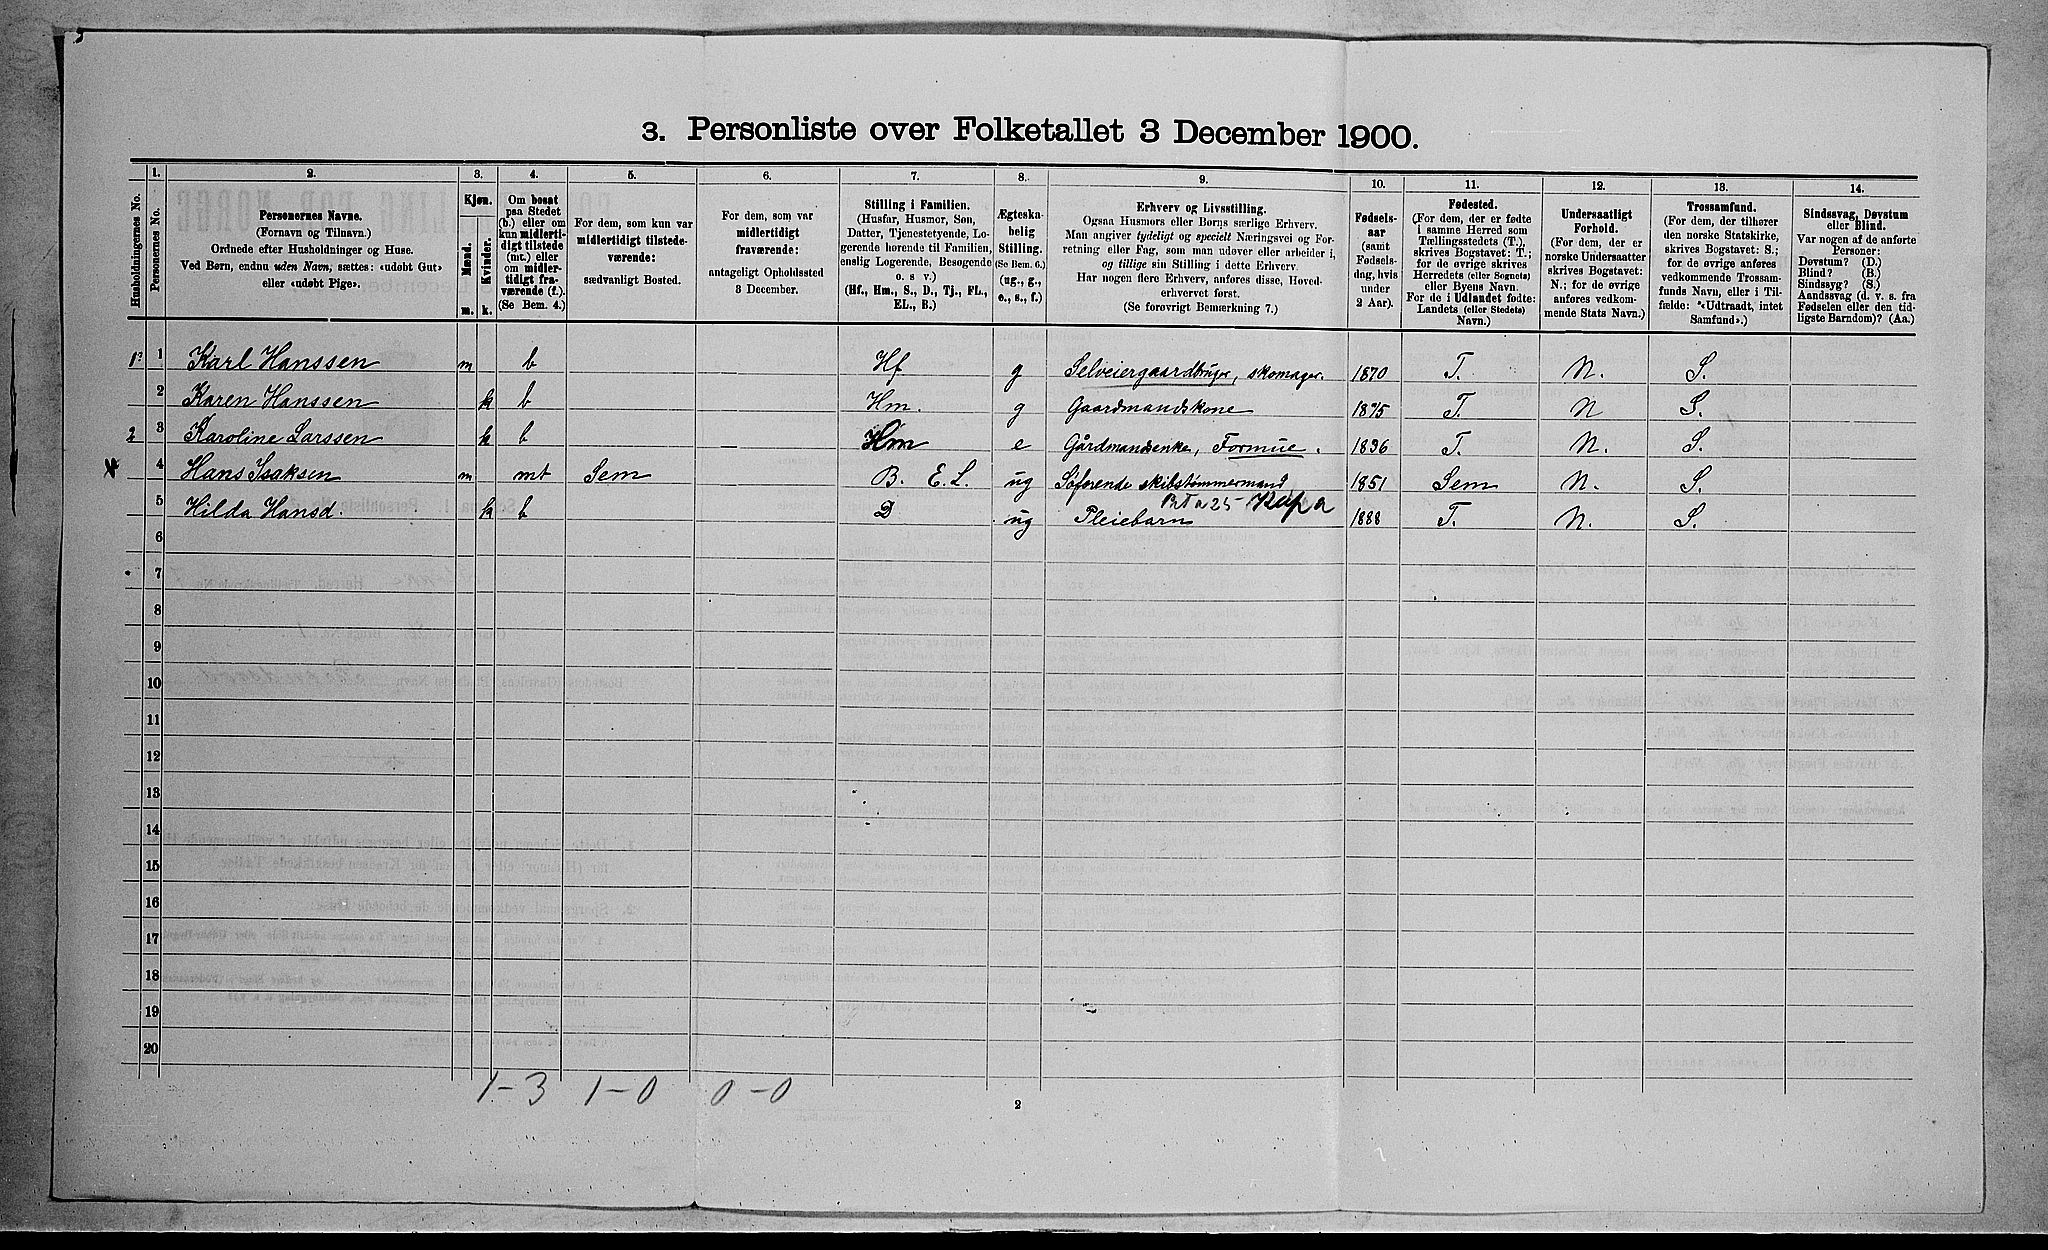 3. Personliste over Folketallet 3 December 1900.
Husholdningernes No.
1. Personernes No.
2. Personernes Navne.
(Fornavn og Tilnavn.)
Ordnede efter Husholdninger og Huse.
Ved Børn, endnu uden Navn, sættes: «udøbt Gut»
eller «udøbt Pige».
3. Kjøn.
Mænd. m.
Kvinder. k.
4. Om bosat
paa Stedet
(b.) eller om
kun midlerti-
digt tilstede
(mt.) eller
om midler-
tidigt fra-
værende (f.).
(Se Bem. 4.)
5. For dem, som kun var
midlertidigt tilstede-
værende:
sædvanligt Bosted.
6. For dem, som var
midlertidigt
fraværende:
antageligt Opholdssted
3 December.
7. Stilling i Familien.
(Husfar, Husmor, Søn,
Datter, Tjenestetyende, Lo-
gerende hørende til Familien,
enslig Logerende, Besøgende
o. s v.)
(Hf., Hm., S., D., Tj., FL.,
EL., B.)
8. Ægteska-
belig
Stilling.
(Se Bem. 6.)
(ug., g.,
e., s., f.)
9. Erhverv og Livsstilling.
Ogsaa Husmors eller Børns særlige Erhverv.
Man angiver tydeligt og specielt Næringsvei og For-
retning eller Fag, som man udøver eller arbeider i,
og tillige sin Stilling i dette Erhverv.
Har nogen flere Erhverv, anføres disse, Hoved-
erhvervet først.
(Se forøvrigt Bemærkning 7.)
10. Fødsels-
aar
(samt
Fødsels-
dag, hvis
under
2 Aar).
11. Fødested.
(For dem, der er fødte
i samme Herred som
Tællingsstedets (T.),
skrives Bogstavet: T.;
for de øvrige skrives
Herredets (eller Sognets)
eller Byens Navn.
For de i Udlandet fødte:
Landets (eller Stedets)
Navn.)
12. Undersaatligt
Forhold.
(For dem, der er
norske Undersaatter
skrives Bogstavet:
N.; for de øvrige
anføres vedkom-
mende Stats Navn.)
13. Trossamfund.
(For dem, der tilhører
den norske Statskirke,
skrives Bogstavet: S.;
for de øvrige anføres
vedkommende Trossam-
funds Navn, eller i Til-
fælde: «Udtraadt, intet
Samfund».)
14. Sindssvag, Døvstum
eller Blind.
Var nogen af de anførte
Personer:
Døvstum? (D.)
Blind? (B.)
Sindssyg? (S.)
Aandssvag (d. v. s. fra
Fødselen eller den tid-
ligste Barndom)? (Aa.)
1 Karl Hanssen m b Hf g Selveiergaardbruger, skomager. 1870 T. N. S.
2 Karen Hanssen k b Hm. g Gaardmandskone 1875 T. N S.
2 3 Karoline Larssen k b Hm e Gårdmandsenke, Formue. 1836 T. N. S.
4 Hans Isaksen m mt Sem B. E.L. ug Søfarende skibstømmermand 1851 Sem N. S.
5 Hilda Hansd. k b D ug Pleiebarn 1888 T. N. S.
6
7
8
9
10
11
12
13
14
15
16
17
18
19
20
1-3 1-0 0-0
2